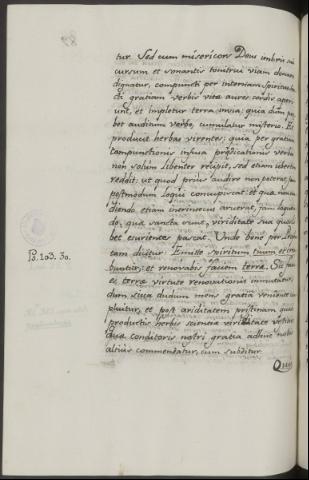 tur. Sed cum misericors Deus imbris sui
cursum et sonantis tonitrui viam donare
dignatur, compuncti per interiam Spiritus San
cti gratiam verbis vitae aures cordis aperi
unt, et impletur terra invia: quia dum prae
bet auditum verbo, cumulatur mysterio. Et
producit herbas virentes: quia per gratiam
compunctionis infusa praedicationis verba
non solum libenter recipit, sed etiam ubertim
reddit: ut quod prius audire non poterat, jam
postmodum loqui concupiscat: et quae non au
diendo etiam intrinsecus aruerat, jam loquen
do, quae sancta sunt, viriditate sua quos li
bet esurientes pascat. Unde bene per Prophe
tam dicitur: Emitte spiritum tuum et crea
Ps. 103. 30.
buntur; et renovabis faciem terrae. Sic fa
es terrae virtute renovationis immutatur,
dum sicca dudum mens gratia veniente im
pluitur, et post ariditatem pristinam quasi
productis herbis scientiae viriditate vestitur
Quae conditoris nostri gratia adhuc nobis
altius commendatur, cum subditur.